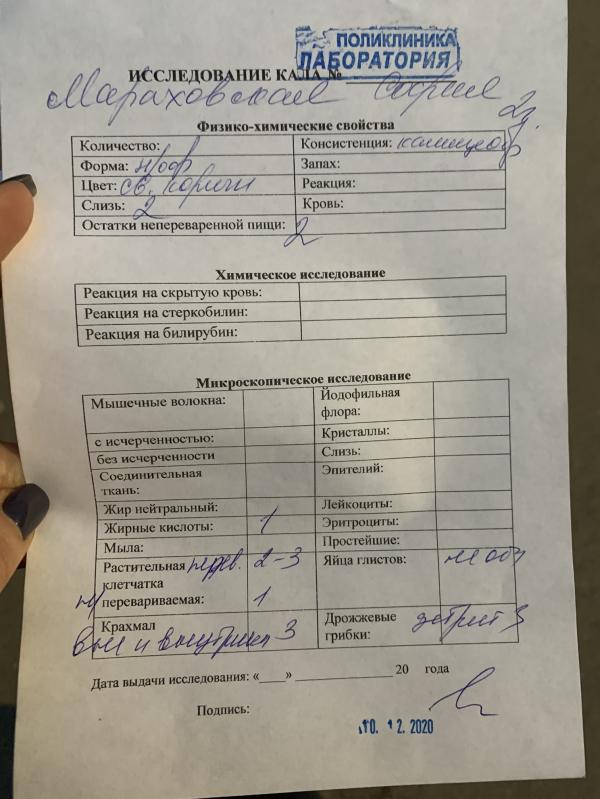 ПОЛИКЛИНИКА
ЛАБОРАТОРИЯ
ИССЛЕДОВАНИЕ КАЛА №
Мараховская София 2г.
Физико-химические свойства
Количество: Консистенция: кашицеобр
Форма: н/оф Запах:
Цвет: св. коричн Реакция:
Слизь: 2 Кровь:
Остатки непереваренной пищи: 2
Химическое исследование
Реакция на скрытую кровь:
Реакция на стеркобилин:
Реакция на билирубин:
Микроскопическое исследование
Мышечные волокна: Йодофильная
флора:
с исчерченностью: Кристаллы:
без исчерченности Слизь:
Соединительная Эпителий:
ткань:
Жир нейтральный: Лейкоциты:
Жирные кислоты: 1 Эритроциты:
Мыла: Простейшие:
Растительная перев. 2-3 Яйца глистов: не обн
клетчатка
н/ перевариваемая: 1
Крахмал Дрожжевые детрит 3
вне и внутрикл 3 грибки:
Дата выдачи исследования: «____» ______________ 20 года
Подпись:
10. 12. 2020